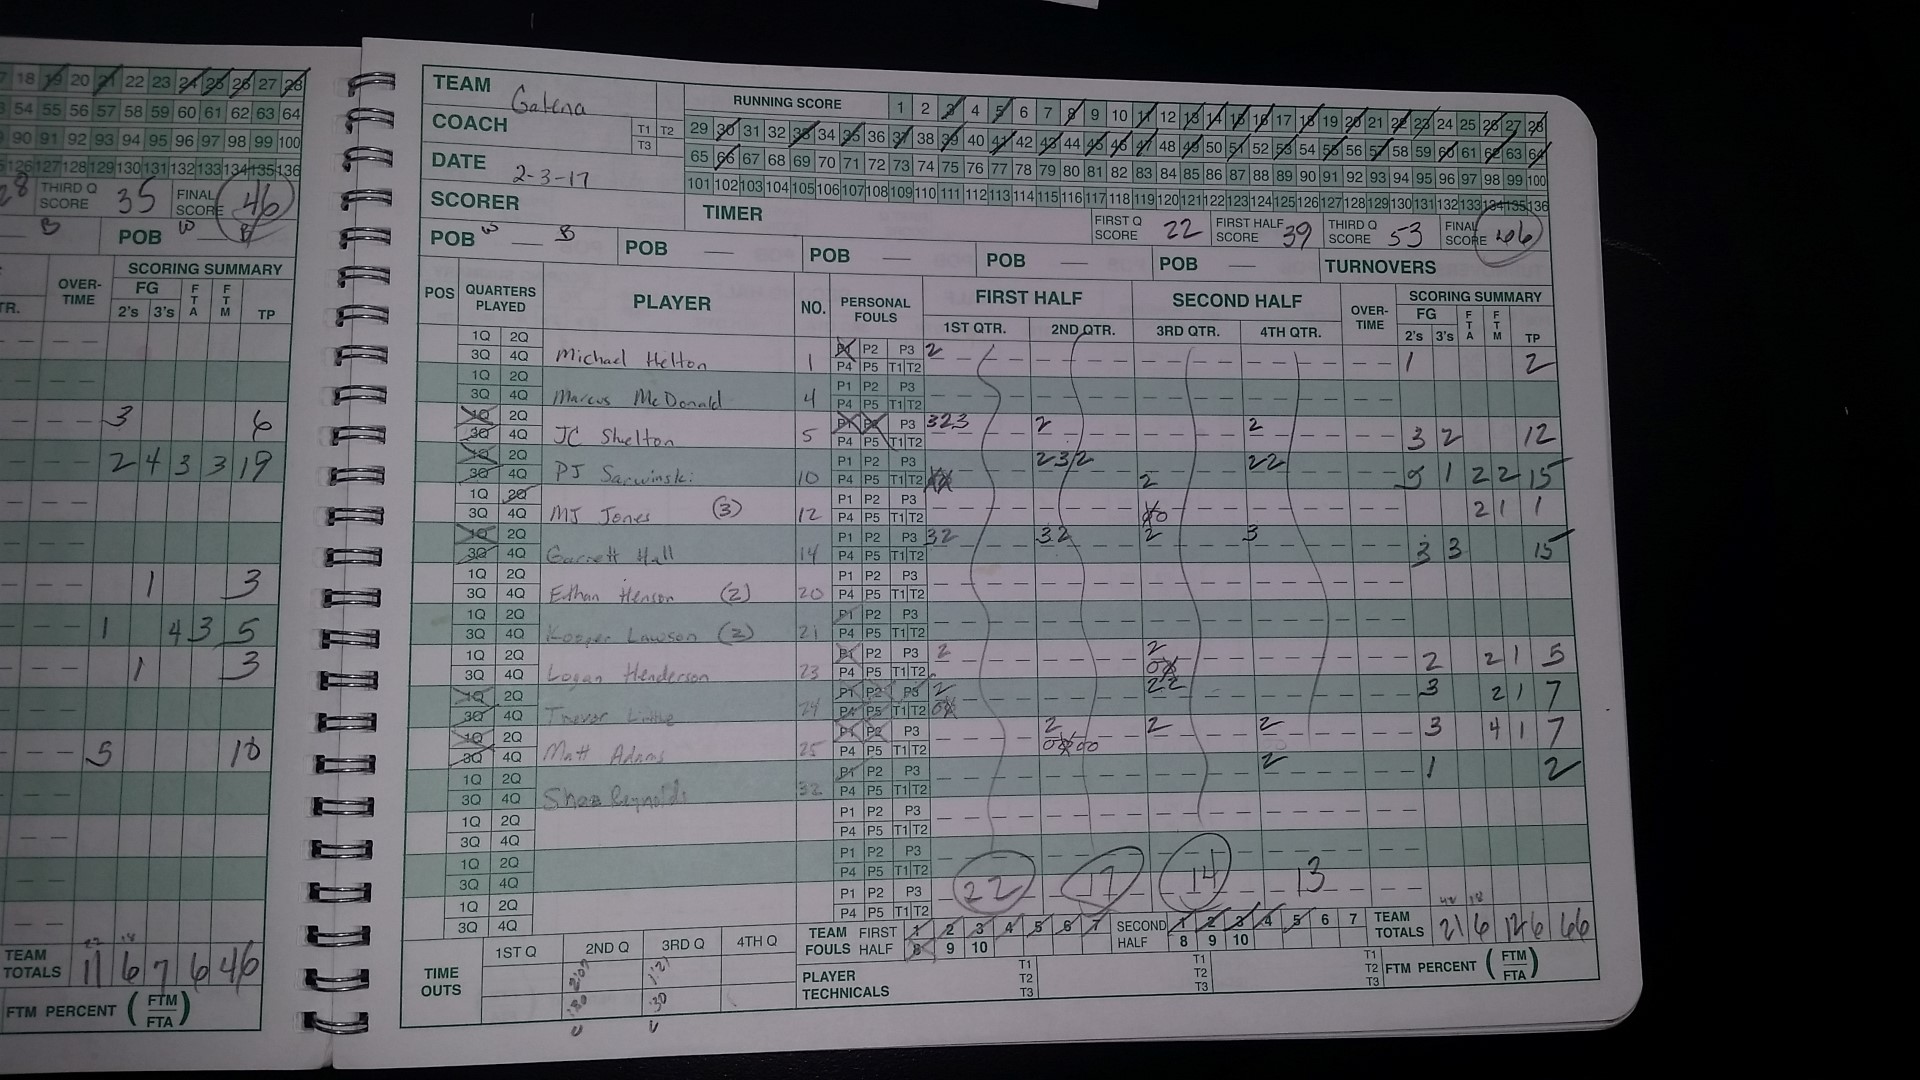 7 18 19 20 21 22 23 24 25 26 27 28
54 55 56 57 58 59 60 61 62 63 64
90 91 92 93 94 95 96 97 98 99 100
126 127 128 129 130 131 132 133 134 135 136
28 THIRD Q SCORE 35 FINAL SCORE 46
B POB W B
OVER-TIME SCORING SUMMARY
FG FTA FTM
TR. 2's 3's TP
3 6
2 4 3 3 19
1 3
1 4 3 5
1 3
5 10
22 18
TEAM TOTALS 11 6 7 6 46
FTM PERCENT (FTM/FTA)
TEAM Galena
COACH T1 T2 T3
DATE 2-3-17
SCORER
RUNNING SCORE 1 2 3 4 5 6 7 8 9 10 11 12 13 14 15 16 17 18 19 20 21 22 23 24 25 26 27 28
29 30 31 32 33 34 35 36 37 38 39 40 41 42 43 44 45 46 47 48 49 50 51 52 53 54 55 56 57 58 59 60 61 62 63 64
65 66 67 68 69 70 71 72 73 74 75 76 77 78 79 80 81 82 83 84 85 86 87 88 89 90 91 92 93 94 95 96 97 98 99 100
101 102 103 104 105 106 107 108 109 110 111 112 113 114 115 116 117 118 119 120 121 122 123 124 125 126 127 128 129 130 131 132 133 134 135 136
TIMER FIRST Q SCORE 22 FIRST HALF SCORE 39 THIRD Q SCORE 53 FINAL SCORE 66
POB W B POB POB POB POB TURNOVERS
POS QUARTERS PLAYED PLAYER NO. PERSONAL FOULS FIRST HALF SECOND HALF OVER-TIME SCORING SUMMARY
1ST QTR. 2ND QTR. 3RD QTR. 4TH QTR. FG 2's 3's FTA FTM TP
1Q 2Q P1 P2 P3 2
3Q 4Q Michael Helton 1 P4 P5 T1 T2 1 2
1Q 2Q P1 P2 P3
3Q 4Q Marcus McDonald 4 P4 P5 T1 T2
1Q 2Q P1 P2 P3 323 2 2
3Q 4Q JC Shelton 5 P4 P5 T1 T2 3 2 12
1Q 2Q P1 P2 P3 232 22
3Q 4Q PJ Sarwinski 10 P4 P5 T1 T2 2 5 1 2 2 15
1Q 2Q P1 P2 P3
3Q 4Q MJ Jones (3) 12 P4 P5 T1 T2 2 1 1
1Q 2Q P1 P2 P3 32 32 2 3
3Q 4Q Garrett Hall 14 P4 P5 T1 T2 3 3 15
1Q 2Q P1 P2 P3
3Q 4Q Ethan Henson (2) 20 P4 P5 T1 T2
1Q 2Q P1 P2 P3
3Q 4Q Kooper Lawson (2) 21 P4 P5 T1 T2
1Q 2Q P1 P2 P3 2 2
3Q 4Q Logan Henderson 23 P4 P5 T1 T2 2 2 1 5
1Q 2Q P1 P2 P3 2 22
3Q 4Q Trevor 24 P4 P5 T1 T2 3 2 1 7
1Q 2Q P1 P2 P3 2 2 2
3Q 4Q Matt Adams 25 P4 P5 T1 T2 3 4 1 7
1Q 2Q P1 P2 P3 2
3Q 4Q Shea Reynolds 32 P4 P5 T1 T2 1 2
1Q 2Q P1 P2 P3
3Q 4Q P4 P5 T1 T2
1Q 2Q P1 P2 P3
3Q 4Q P4 P5 T1 T2
1Q 2Q P1 P2 P3
3Q 4Q P4 P5 T1 T2
22 17 14 13
TIME OUTS 1ST Q 2ND Q 3RD Q 4TH Q
:30 :30
TEAM FOULS FIRST HALF 1 2 3 4 5 6 7 8 9 10 SECOND HALF 1 2 3 4 5 6 7 8 9 10
42 18
TEAM TOTALS 21 6 12 6 66
PLAYER TECHNICALS T1 T2 T3 T1 T2 T3 T1 T2 T3 FTM PERCENT (FTM/FTA)